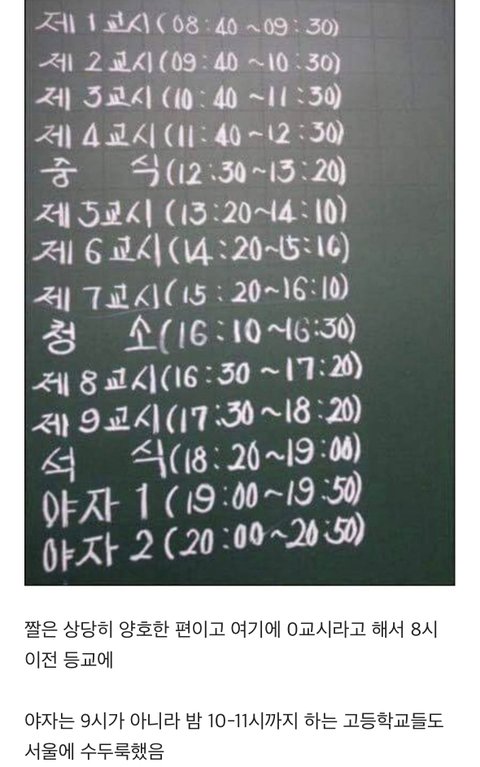 제 1 교시(08:40~09:30)
제 2 교시(09:40~10:30)
제 3교시(10:40~11:30)
제 4교시(11:40~12:30)
중 식(12:30~13:20)
제 5교시(13:20~14:10)
제 6교시(14:20~15:10)
제 7교시(15:20~16:10)
청 소(16:10~16:30)
제 8교시(16:30~17:20)
제 9교시(17:30~18:20)
석 식(18:20~19:00)
야자 1 (19:00~19:50)
야자 2 (20:00~20:50)
짤은 상당히 양호한 편이고 여기에 0교시라고 해서 8시
이전 등교에
야자는 9시가 아니라 밤 10-11시까지 하는 고등학교들도
서울에 수두룩했음